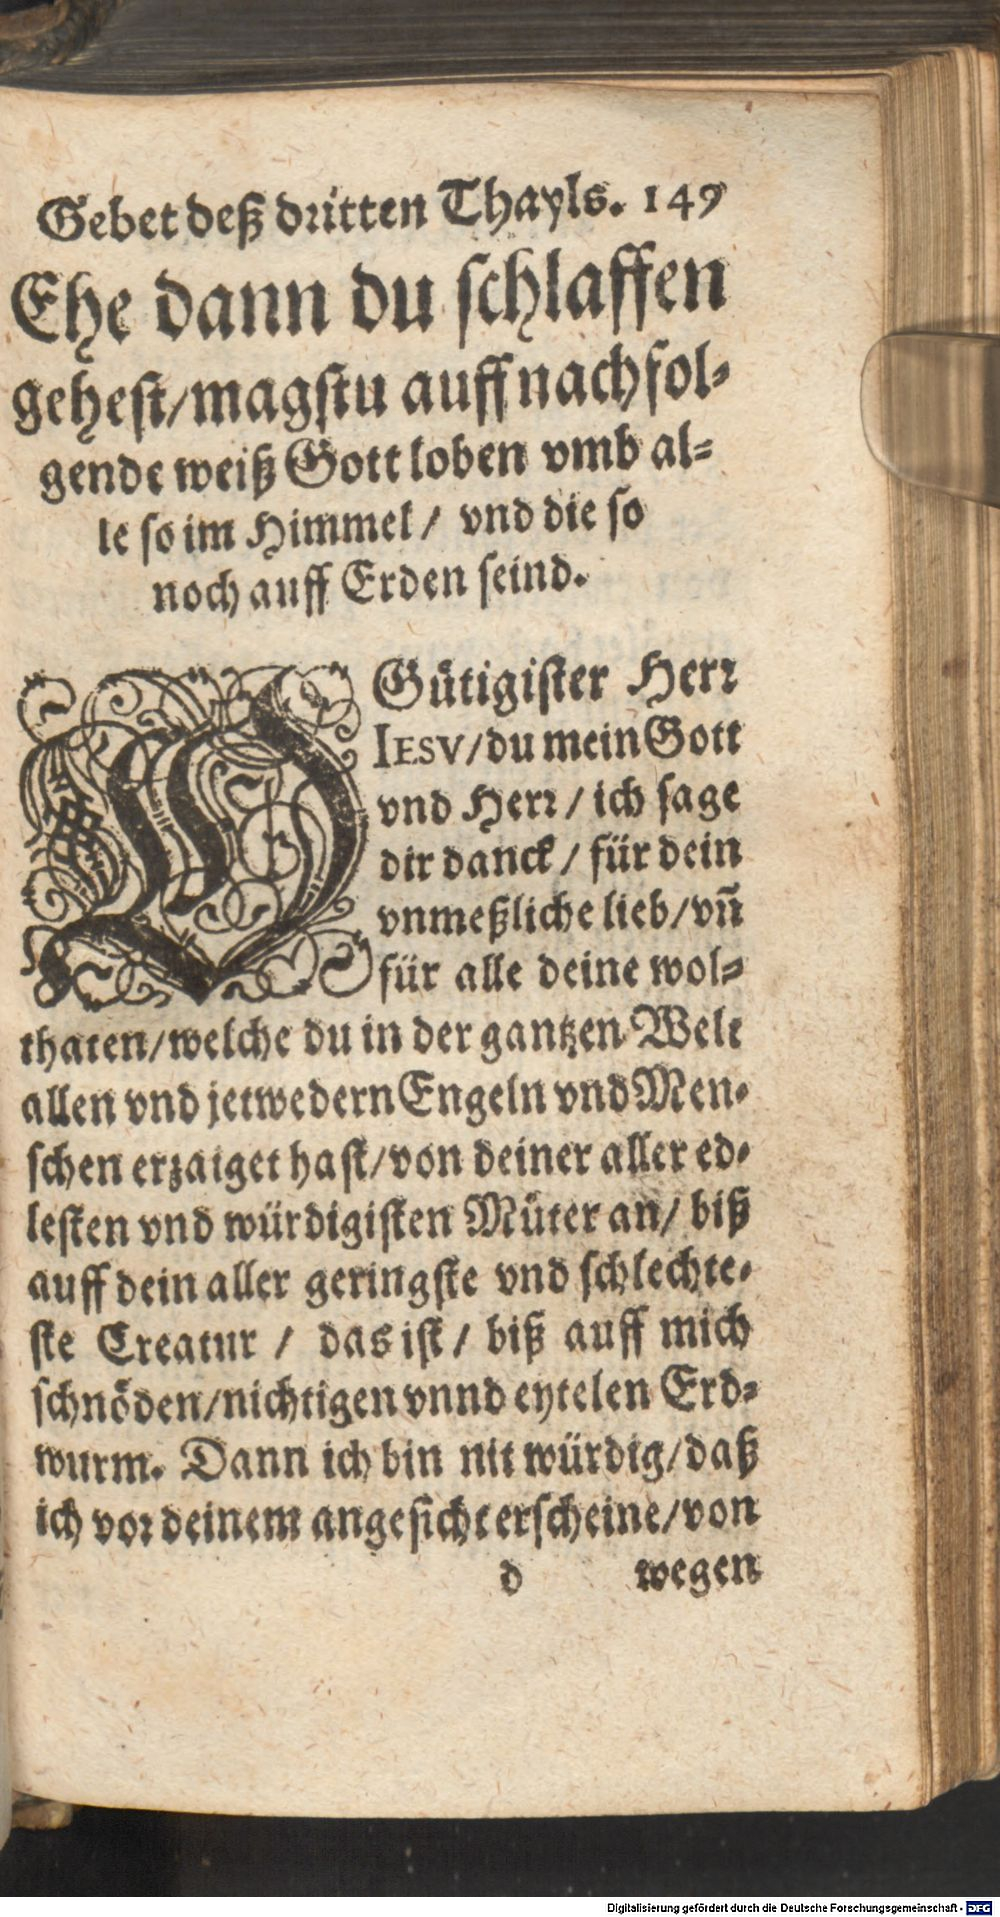 Gebet deß dritten Thayls. 149
Ehe dann du schlaffen
gehest/magstu auff nachfol-
gende weiß Gott loben vmb al-
le so im Himmel / vnd die so
noch auff Erden seind.
O Gütigister Herr
IESV/du mein Gott
vnd Herr / ich sage
dir danck / für dein
vnmeßliche lieb/vñ
für alle deine wol-
thaten/welche du in der gantzen Welt
allen vnd jetwedern Engeln vnd Men-
schen erzaiget hast/von deiner aller ed-
lesten vnd würdigisten Můter an/ biß
auff dein aller geringste vnd schlechte-
ste Creatur / das ist / biß auff mich
schnöden/nichtigen vnnd eytelen Erd-
wurm. Dann ich bin nit würdig/daß
ich vor deinem angesicht erscheine/von
d wegen
Digitalisierung gefördert durch die Deutsche Forschungsgemeinschaft - DFG